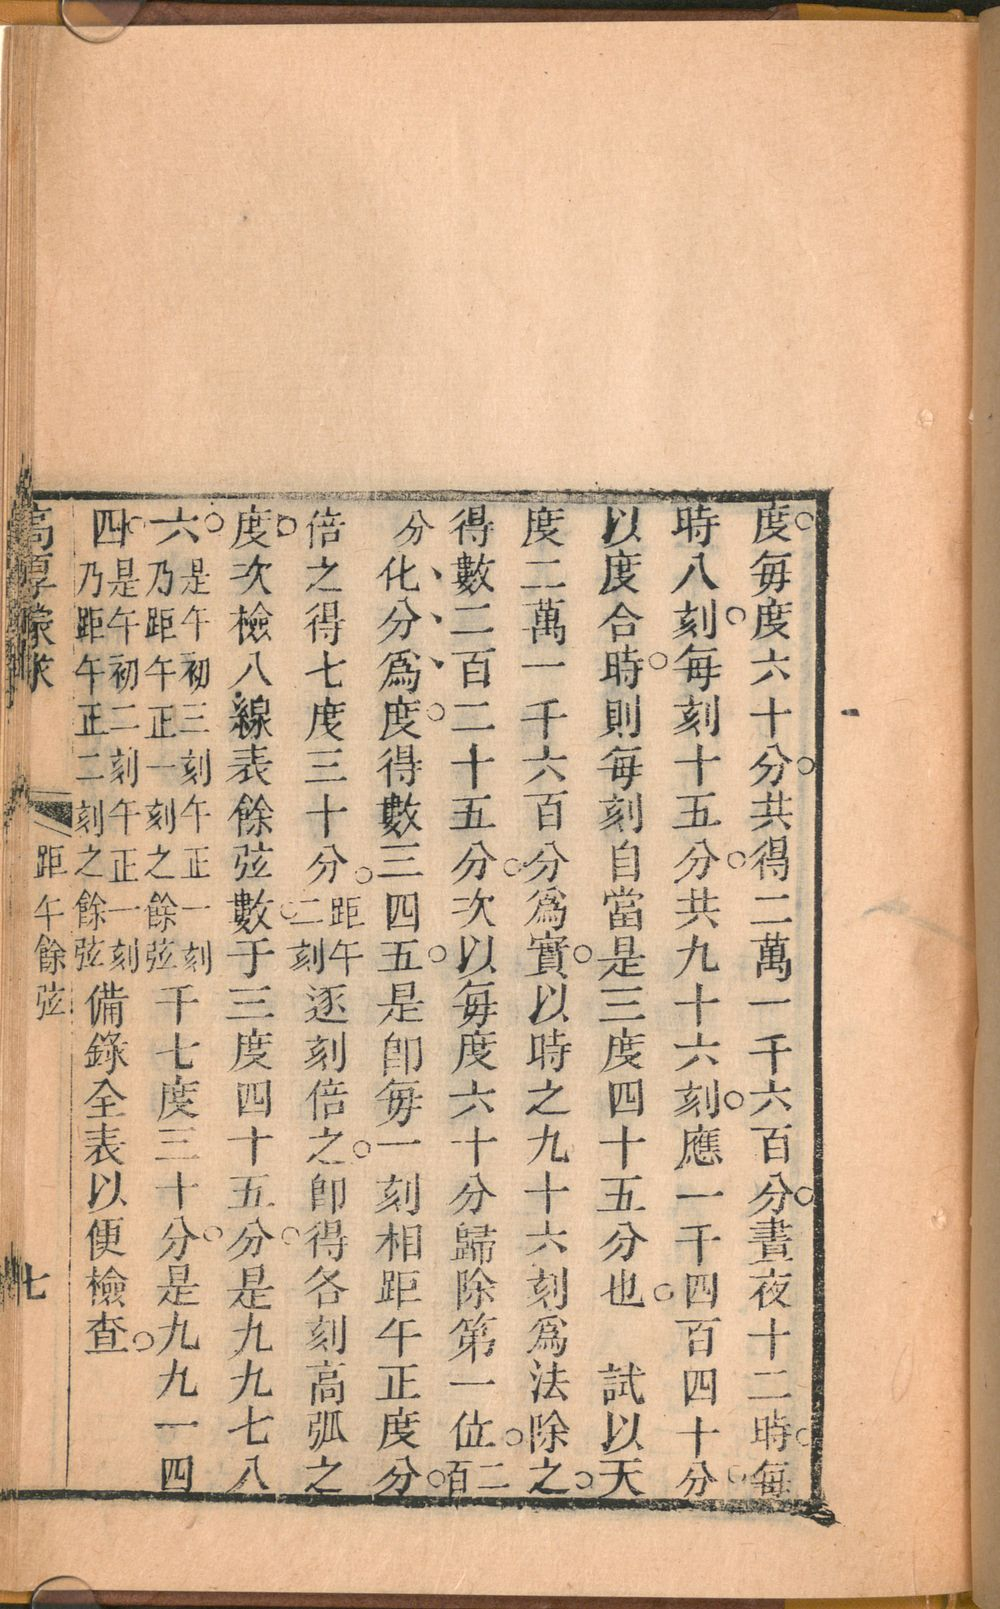 度〇每度六十分〇共得二萬一千六百分〇晝夜十二時〇每
時八刻〇每刻十五分〇共九十六刻〇應一千四百四十分〇
以度合時〇則每刻自當是三度四十五分也〇　試以天
度二萬一千六百分爲實〇以時之九十六刻爲法除之〇
得數二百二十五分〇次以每度六十分歸除第一位〇二百
分化、分、爲、度〇得數三四五〇是卽每一刻相距午正度分〇
倍之得七度三十分〇距午二刻逐刻倍之〇卽得各刻高弧之
度〇次檢八線表餘弦數〇于三度四十五分〇是九九七八
六〇是午初三刻午正一刻乃距午正一刻之餘弦千七度三十分〇是九九一四
四〇是午初二刻午正一刻乃距午正二刻之餘弦備錄全表以便檢查〇
高厚蒙求
距午餘弦
七